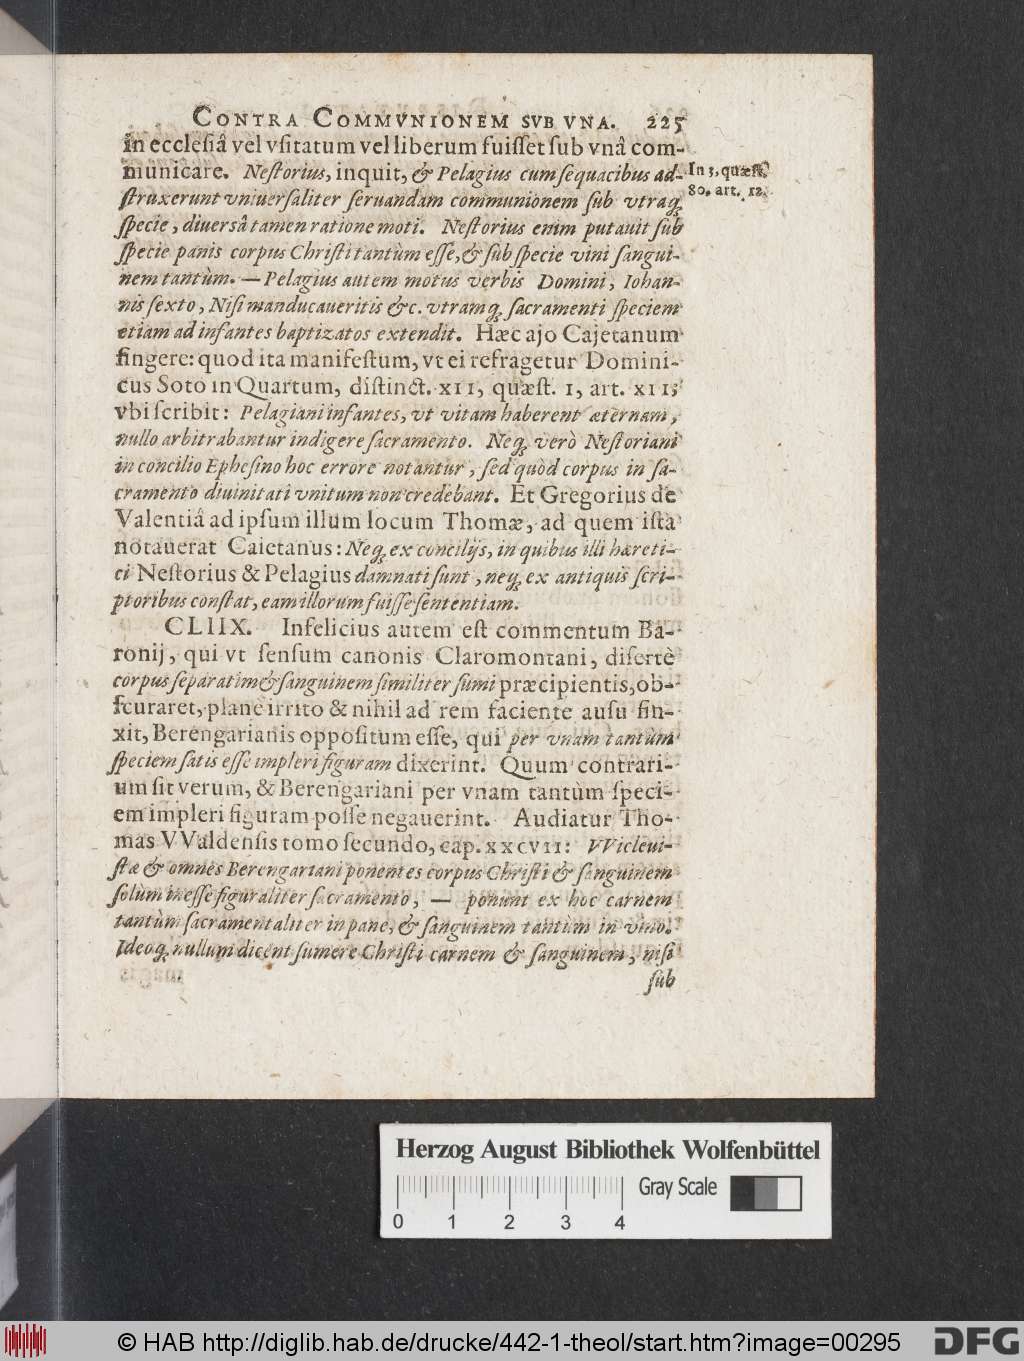 CONTRA COMMVNIONEM SVB VNA. 225
in ecclesiâ vel vsitatum vel liberum fuisset sub vnâ com-
municare. Nestorius, inquit, & Pelagius cum sequacibus ad-
In 3, quæst.
80. art. 12.
struxerunt vniuersaliter seruandam communionem sub vtraq;
specie, diuersâ tamen ratione moti. Nestorius enim putauit sub
specie panis corpus Christi tantùm esse, & sub specie vini sangui-
nem tantùm. — Pelagius autem motus verbis Domini, Iohan-
nis sexto, Nisi manducaueritis &c. vtramq; sacramenti speciem
etiam ad infantes baptizatos extendit. Hæc ajo Cajetanum
fingere: quod ita manifestum, vt ei refragetur Domini-
cus Soto in Quartum, distinct. XII, quæst. I, art. XII;
vbi scribit: Pelagiani infantes, vt vitam haberent æternam,
nullo arbitrabantur indigere sacramento. Neq; verò Nestoriani
in concilio Ephesino hoc errore notantur, sed quòd corpus in sa-
cramento diuinitati vnitum non credebant. Et Gregorius de
Valentiâ ad ipsum illum locum Thomæ, ad quem ista
notauerat Caietanus: Neq; ex concilijs, in quibus illi hæreti-
ci Nestorius & Pelagius damnati sunt, neq; ex antiquis scri-
ptoribus constat, eam illorum fuisse sententiam.
CLIIX. Infelicius autem est commentum Ba-
ronij, qui vt sensum canonis Claromontani, disertè
corpus separatim & sanguinem similiter sumi præcipientis, ob-
scuraret, planè irrito & nihil ad rem faciente ausu fin-
xit, Berengarianis oppositum esse, qui per vnam tantùm
speciem satis esse impleri figuram dixerint. Quum contrari-
um sit verum, & Berengariani per vnam tantùm speci-
em impleri figuram posse negauerint. Audiatur Tho-
mas VValdensis tomo secundo, cap. XXCVII: VVicleui-
stæ & omnes Berengariani ponentes corpus Christi & sanguinem
solùm inesse figuraliter sacramento, — ponunt ex hoc carnem
tantùm sacramentaliter in pane, & sanguinem tantùm in vino.
Ideoq; nullum dicent sumere Christi carnem & sanguinem, nisi
sub
Herzog August Bibliothek Wolfenbüttel
Gray Scale
0 1 2 3 4
© HAB http://diglib.hab.de/drucke/442-1-theol/start.htm?image=00295
DFG